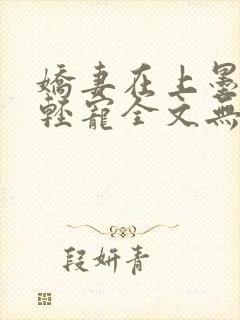 嬌妻在上墨
輕寵全文無
段妍青